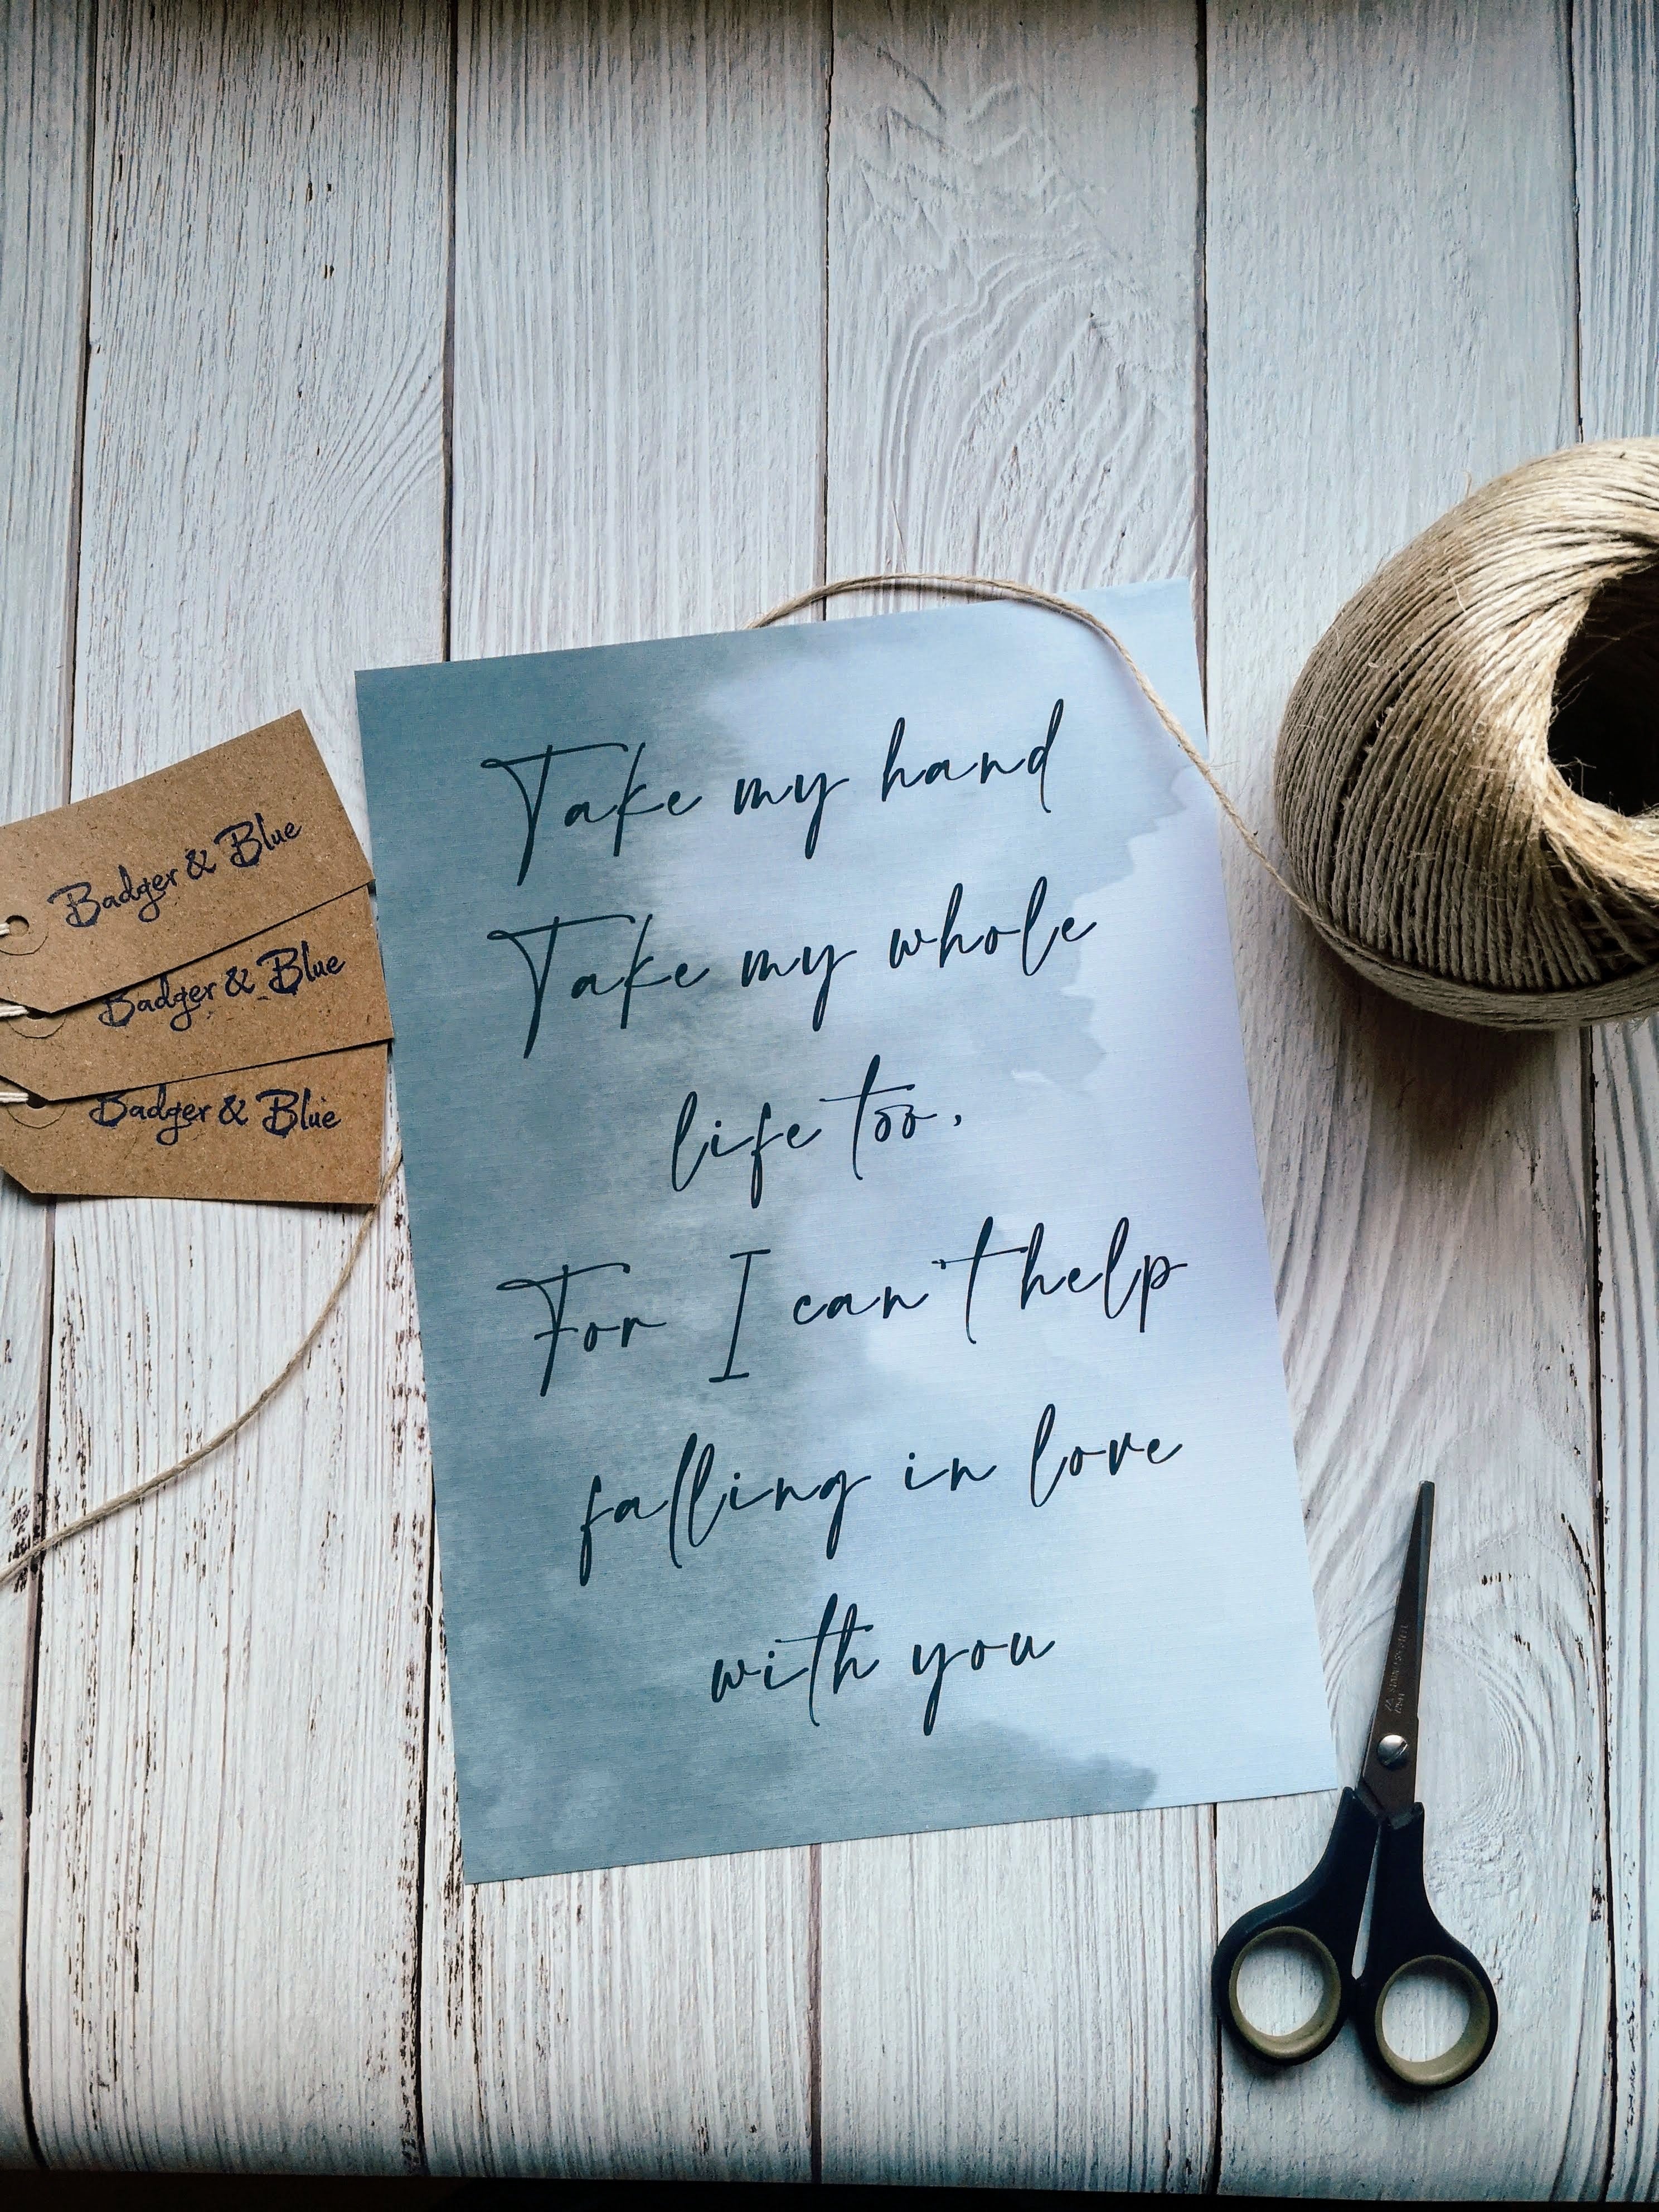 Take my hand
Take my whole
life too,
For I can't help
falling in love
with you
Badger & Blue
Badger & Blue
Badger & Blue